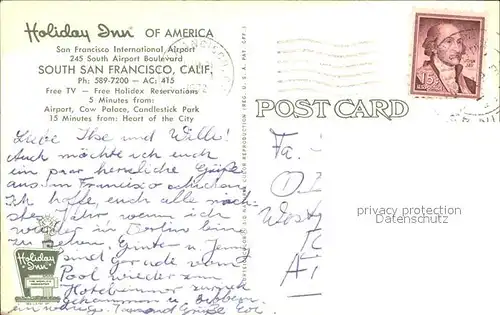 Holiday Inn OF AMERICA
San Francisco International Airport
245 South Airport Boulevard
SOUTH SAN FRANCISCO, CALIF.
Ph: 589-7200 — AC: 415
Free TV — Free Holidex Reservations
5 Minutes from:
Airport, Cow Palace, Candlestick Park
15 Minutes from: Heart of the City
Liebe Ilse und Willi!
Auch möchte ich euch
ein paar herzliche Grüße
aus San Francisco schicken
Ich hoffe, euch alle näch-
stes Jahr, wenn ich
wieder in Berlin bin
zu sehen. Günter u. Jenny
sind gerade vom
Pool wieder zum
Hotelzimmer zurück
gekommen u.
Tausend Grüße Eve
Holiday Inn
POST CARD
15¢
Fa.
privacy protection
Datenschutz